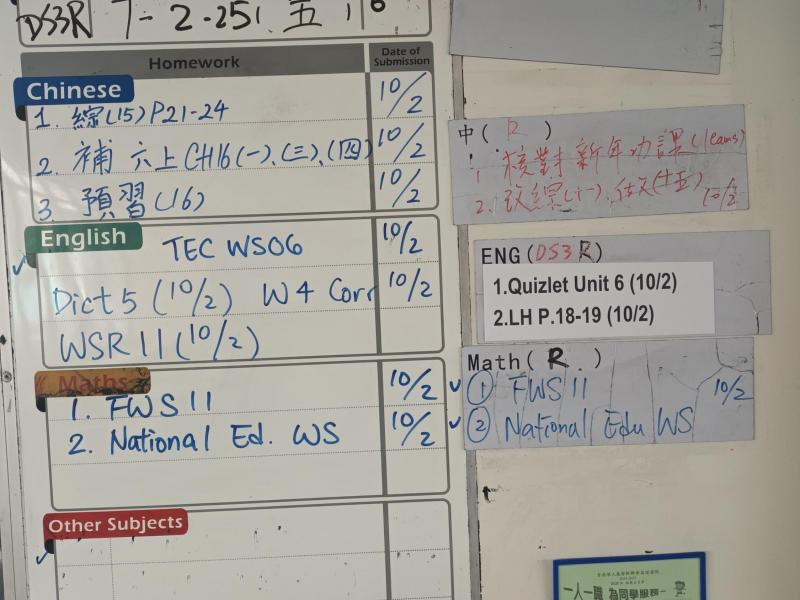 DS3R 7-2-25( 五 )
Homework
Date of Submission
Chinese
1. 綜(15) P21-24 10/2
2. 補 六上CH16 (一)、(三)、(四) 10/2
3. 預習 (16) 10/2
English
TEC WS06 10/2
Dict 5 (10/2) W4 Corr 10/2
WSR 11 (10/2)
Maths
1. FWS 11 10/2
2. National Ed. WS 10/2
Other Subjects
中( R )
1. 核對新年功課 (Teams)
2. 改綜(十一)、作文(十五) 10/2
ENG (DS3R)
1.Quizlet Unit 6 (10/2)
2.LH P.18-19 (10/2)
Math( R )
① FWS 11 10/2
② National Edu WS
一人一職 為同學服務